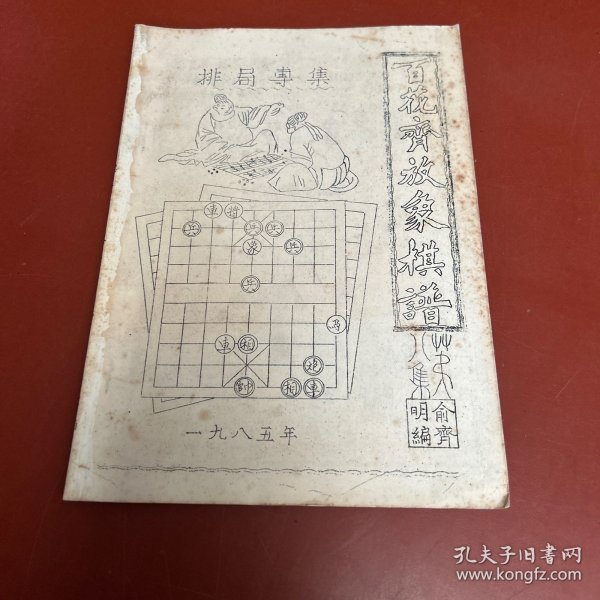 排局專集
百花齊放象棋譜
集
俞齊
明編
車 將
兵 兵 兵
象 兵
兵
馬
車 相
炮
帥 相 車
一九八五年
孔夫子旧书网
www.kongfz.com